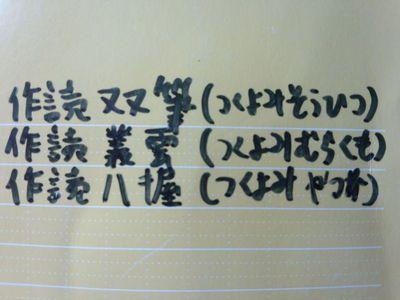 作読双筆(つくよみそうひつ)
作読叢雲(つくよみむらくも)
作読八握(つくよみやつか)